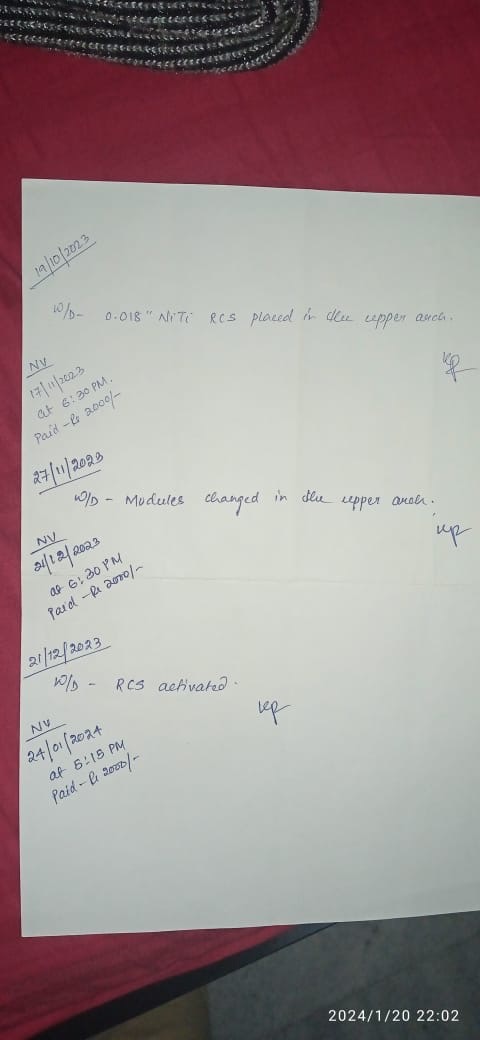 19/10/2023
W/D- 0.018" NiTi RCS placed in the upper arch.
NV
17/11/2023
at 6:30 PM.
Paid - Rs 2000/-
27/11/2023
W/D - Modules changed in the upper arch.
NV
21/12/2023
at 6:30 PM
Paid - Rs 2000/-
21/12/2023
W/D - RCS activated.
NV
24/01/2024
at 5:15 PM
Paid - Rs 2000/-
2024/1/20 22:02